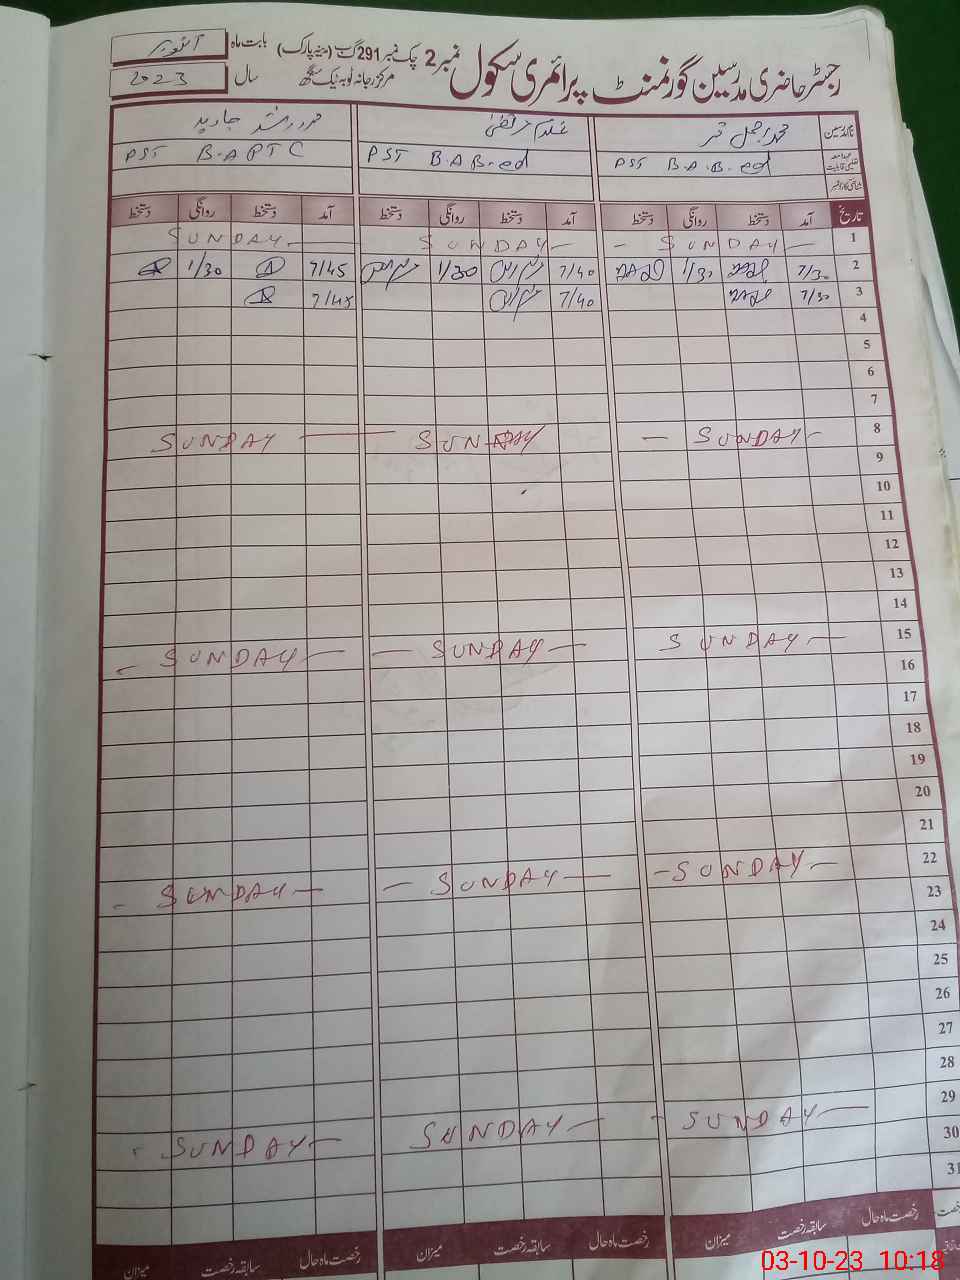 رجسٹر حاضری مدرسین گورنمنٹ پرائمری سکول نمبر 2 چک نمبر 291 گ ب (مدینہ پارک) بابت ماہ اکتوبر
مرکز رجانہ ٹوبہ ٹیک سنگھ سال 2023
نام مدرسین محمد اجمل قمر غلام مرتضیٰ جاوید
عہدہ معہ تعلیمی قابلیت PST B.A.B.ed PST B.A B.ed PST B.A PTC
شناختی کارڈ نمبر
تاریخ آمد دستخط روانگی دستخط آمد دستخط روانگی دستخط آمد دستخط روانگی دستخط
1 SUNDAY SUNDAY SUNDAY
2 7/30 1/30 7/40 1/30 7/45 1/30
3 7/30 7/40 7/45
4
5
6
7
8 SUNDAY SUNDAY SUNDAY
9
10
11
12
13
14
15 SUNDAY SUNDAY SUNDAY
16
17
18
19
20
21
22 SUNDAY SUNDAY SUNDAY
23
24
25
26
27
28
29 SUNDAY SUNDAY SUNDAY
30
31
رخصت رخصت ماہ حال سابقہ رخصت میزان رخصت ماہ حال سابقہ رخصت میزان رخصت ماہ حال سابقہ رخصت میزان
03-10-23 10:18